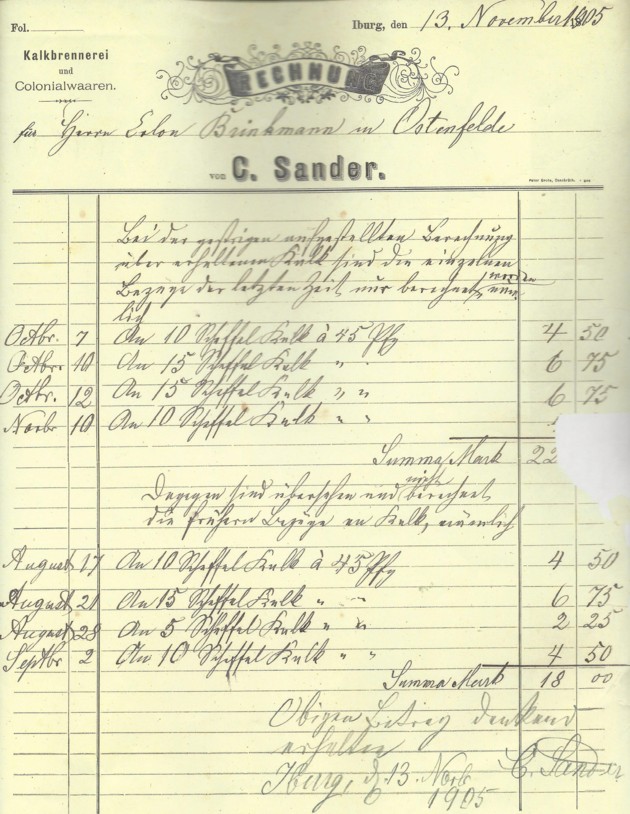 Fol.
Iburg, den 13. November 1905
Kalkbrennerei
und
Colonialwaaren.
RECHNUNG
für Herrn Colon Brinkmann in Ostenfelde
von C. Sander.
Bei der gestrigen aufgestellten Berechnung
über erhaltenen Kalk sind die einzelnen
Bezüge der letzten Zeit nur berechnet worden näm-
lich
Octbr. 7 An 10 Scheffel Kalk à 45 Pfg 4 50
Octbr. 10 An 15 Scheffel Kalk " 6 75
Octbr. 12 An 15 Scheffel Kalk " " 6 75
Novbr 10 An 10 Scheffel Kalk " "
Summa Mark 22
Dagegen sind übersehen und nicht berechnet
die frühern Bezüge an Kalk, nämlich
August 17 An 10 Scheffel Kalk à 45 Pfg 4 50
August 21 An 15 Scheffel Kalk " " 6 75
August 28 An 5 Scheffel Kalk " " 2 25
Septbr 2 An 10 Scheffel Kalk " " 4 50
Summa Mark 18 00
Obigen Betrag dankend
erhalten
Iburg, d. 13 Novb. C. Sander
1905